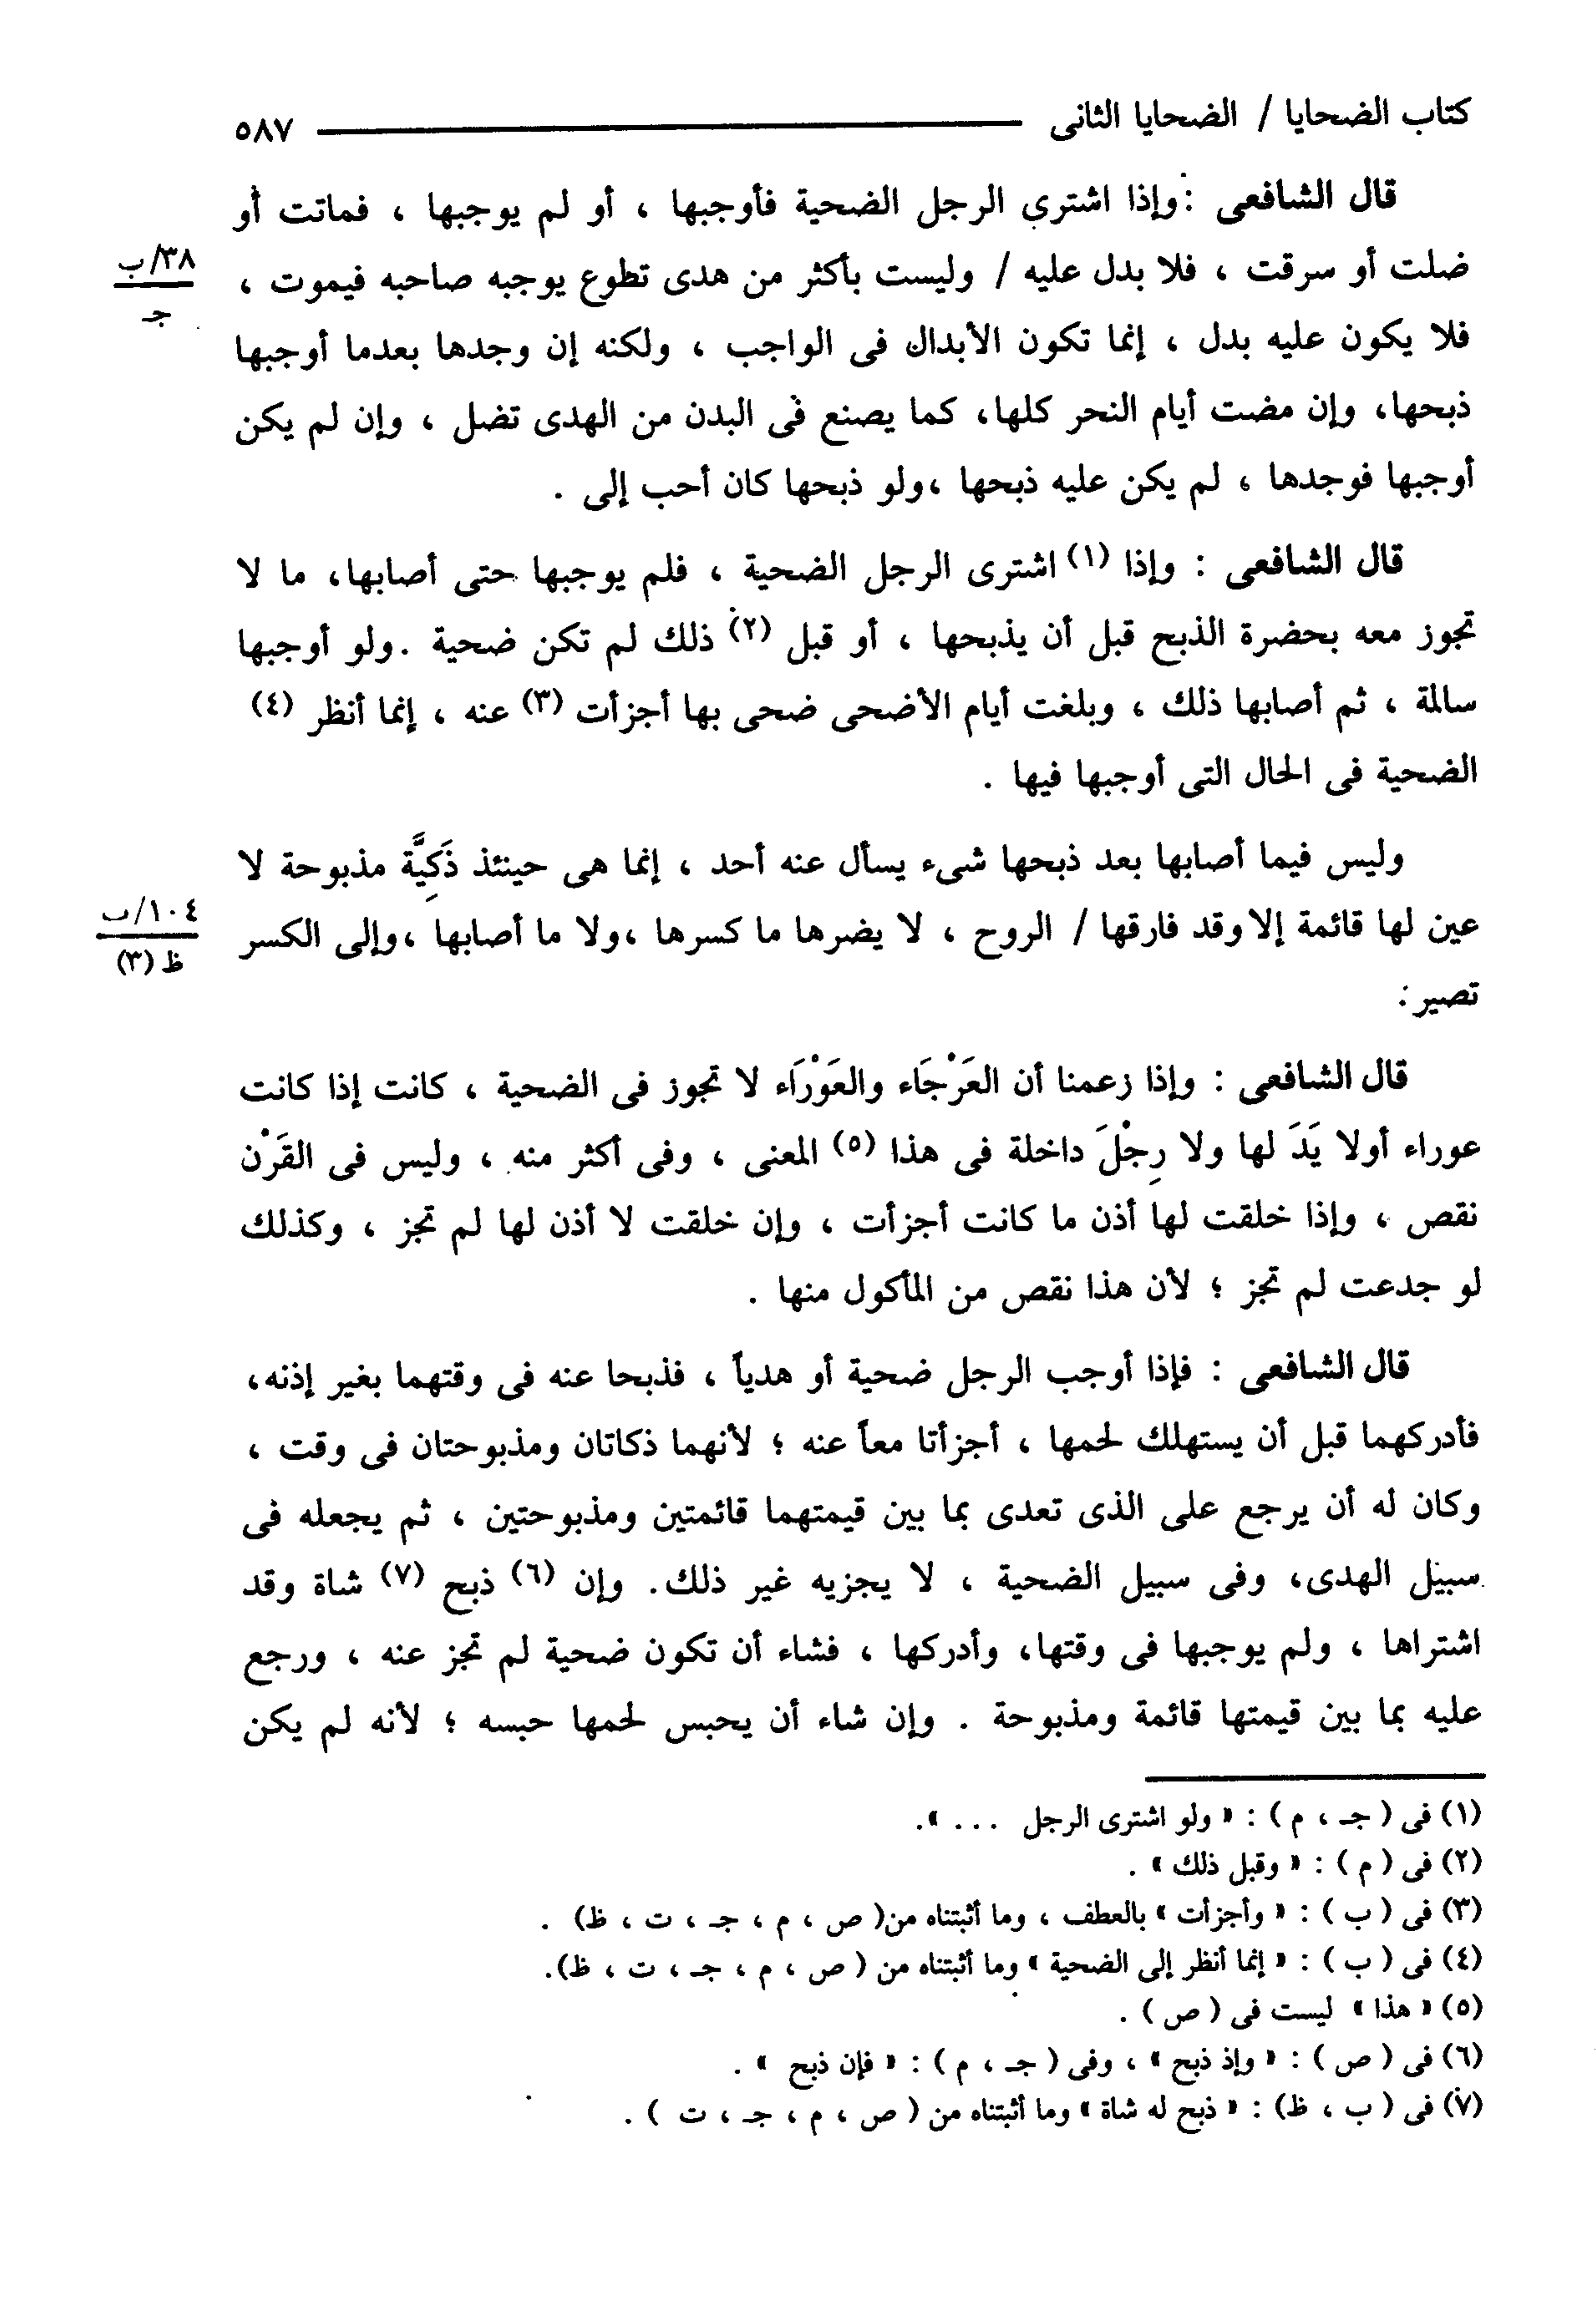 كتاب الضحايا / الضحايا الثانى ٥٨٧
قال الشافعى : وإذا اشترى الرجل الضحية فأوجبها ، أو لم يوجبها ، فماتت أو
ضلت أو سرقت ، فلا بدل عليه / وليست بأكثر من هدى تطوع يوجبه صاحبه فيموت ،
٣٨/ب
جـ
فلا يكون عليه بدل ، إنما تكون الأبدال فى الواجب ، ولكنه إن وجدها بعدما أوجبها
ذبحها، وإن مضت أيام النحر كلها، كما يصنع فى البدن من الهدى تضل ، وإن لم يكن
أوجبها فوجدها ، لم يكن عليه ذبحها ،ولو ذبحها كان أحب إلى .
قال الشافعى : وإذا (١) اشترى الرجل الضحية ، فلم يوجبها حتى أصابها، ما لا
تجوز معه بحضرة الذبح قبل أن يذبحها ، أو قبل (٢) ذلك لم تكن ضحية .ولو أوجبها
سالمة ، ثم أصابها ذلك ، وبلغت أيام الأضحى ضحى بها أجزأت (٣) عنه ، إنما أنظر (٤)
الضحية فى الحال التى أوجبها فيها .
وليس فيما أصابها بعد ذبحها شىء يسأل عنه أحد ، إنما هى حينئذ ذَكِيَّة مذبوحة لا
عين لها قائمة إلا وقد فارقها / الروح ، لا يضرها ما كسرها ،ولا ما أصابها ،وإلى الكسر
١٠٤/ب
ظ (٣)
تصير:
قال الشافعى : وإذا زعمنا أن العَرْجَاء والعَوْرَاء لا تجوز فى الضحية ، كانت إذا كانت
عوراء أولا يَدَ لها ولا رِجْلَ داخلة فى هذا (٥) المعنى ، وفى أكثر منه ، وليس فى القَرْن
نقص ، وإذا خلقت لها أذن ما كانت أجزأت ، وإن خلقت لا أذن لها لم تجز ، وكذلك
لو جدعت لم تجز ؛ لأن هذا نقص من المأكول منها .
قال الشافعى : فإذا أوجب الرجل ضحية أو هدياً ، فذبحا عنه فى وقتهما بغير إذنه،
فأدركهما قبل أن يستهلك لحمها ، أجزأتا معاً عنه ؛ لأنهما ذكاتان ومذبوحتان فى وقت ،
وكان له أن يرجع على الذى تعدى بما بين قيمتهما قائمتين ومذبوحتين ، ثم يجعله فى
سبيل الهدى، وفى سبيل الضحية ، لا يجزيه غير ذلك. وإن (٦) ذبح (٧) شاة وقد
اشتراها ، ولم يوجبها فى وقتها، وأدركها ، فشاء أن تكون ضحية لم تجز عنه ، ورجع
عليه بما بين قيمتها قائمة ومذبوحة . وإن شاء أن يحبس لحمها حبسه ؛ لأنه لم يكن
(١) فى ( جـ ، م ) : « ولو اشترى الرجل ... ».
(٢) فى ( م ) : « وقبل ذلك » .
(٣) فى ( ب ) : « وأجزأت » بالعطف ، وما أثبتناه من( ص ، م ، جـ ، ت ، ظ) .
(٤) فى ( ب ) : « إنما أنظر إلى الضحية » وما أثبتناه من ( ص ، م ، جـ ، ت ، ظ).
(٥) « هذا » ليست فى ( ص ) .
(٦) فى ( ص ) : « وإذ ذبح » ، وفى ( جـ ، م ) : « فإن ذبح » .
(٧) فى ( ب ، ظ) : « ذبح له شاة » وما أثبتناه من ( ص ، م ، جـ ، ت ) .